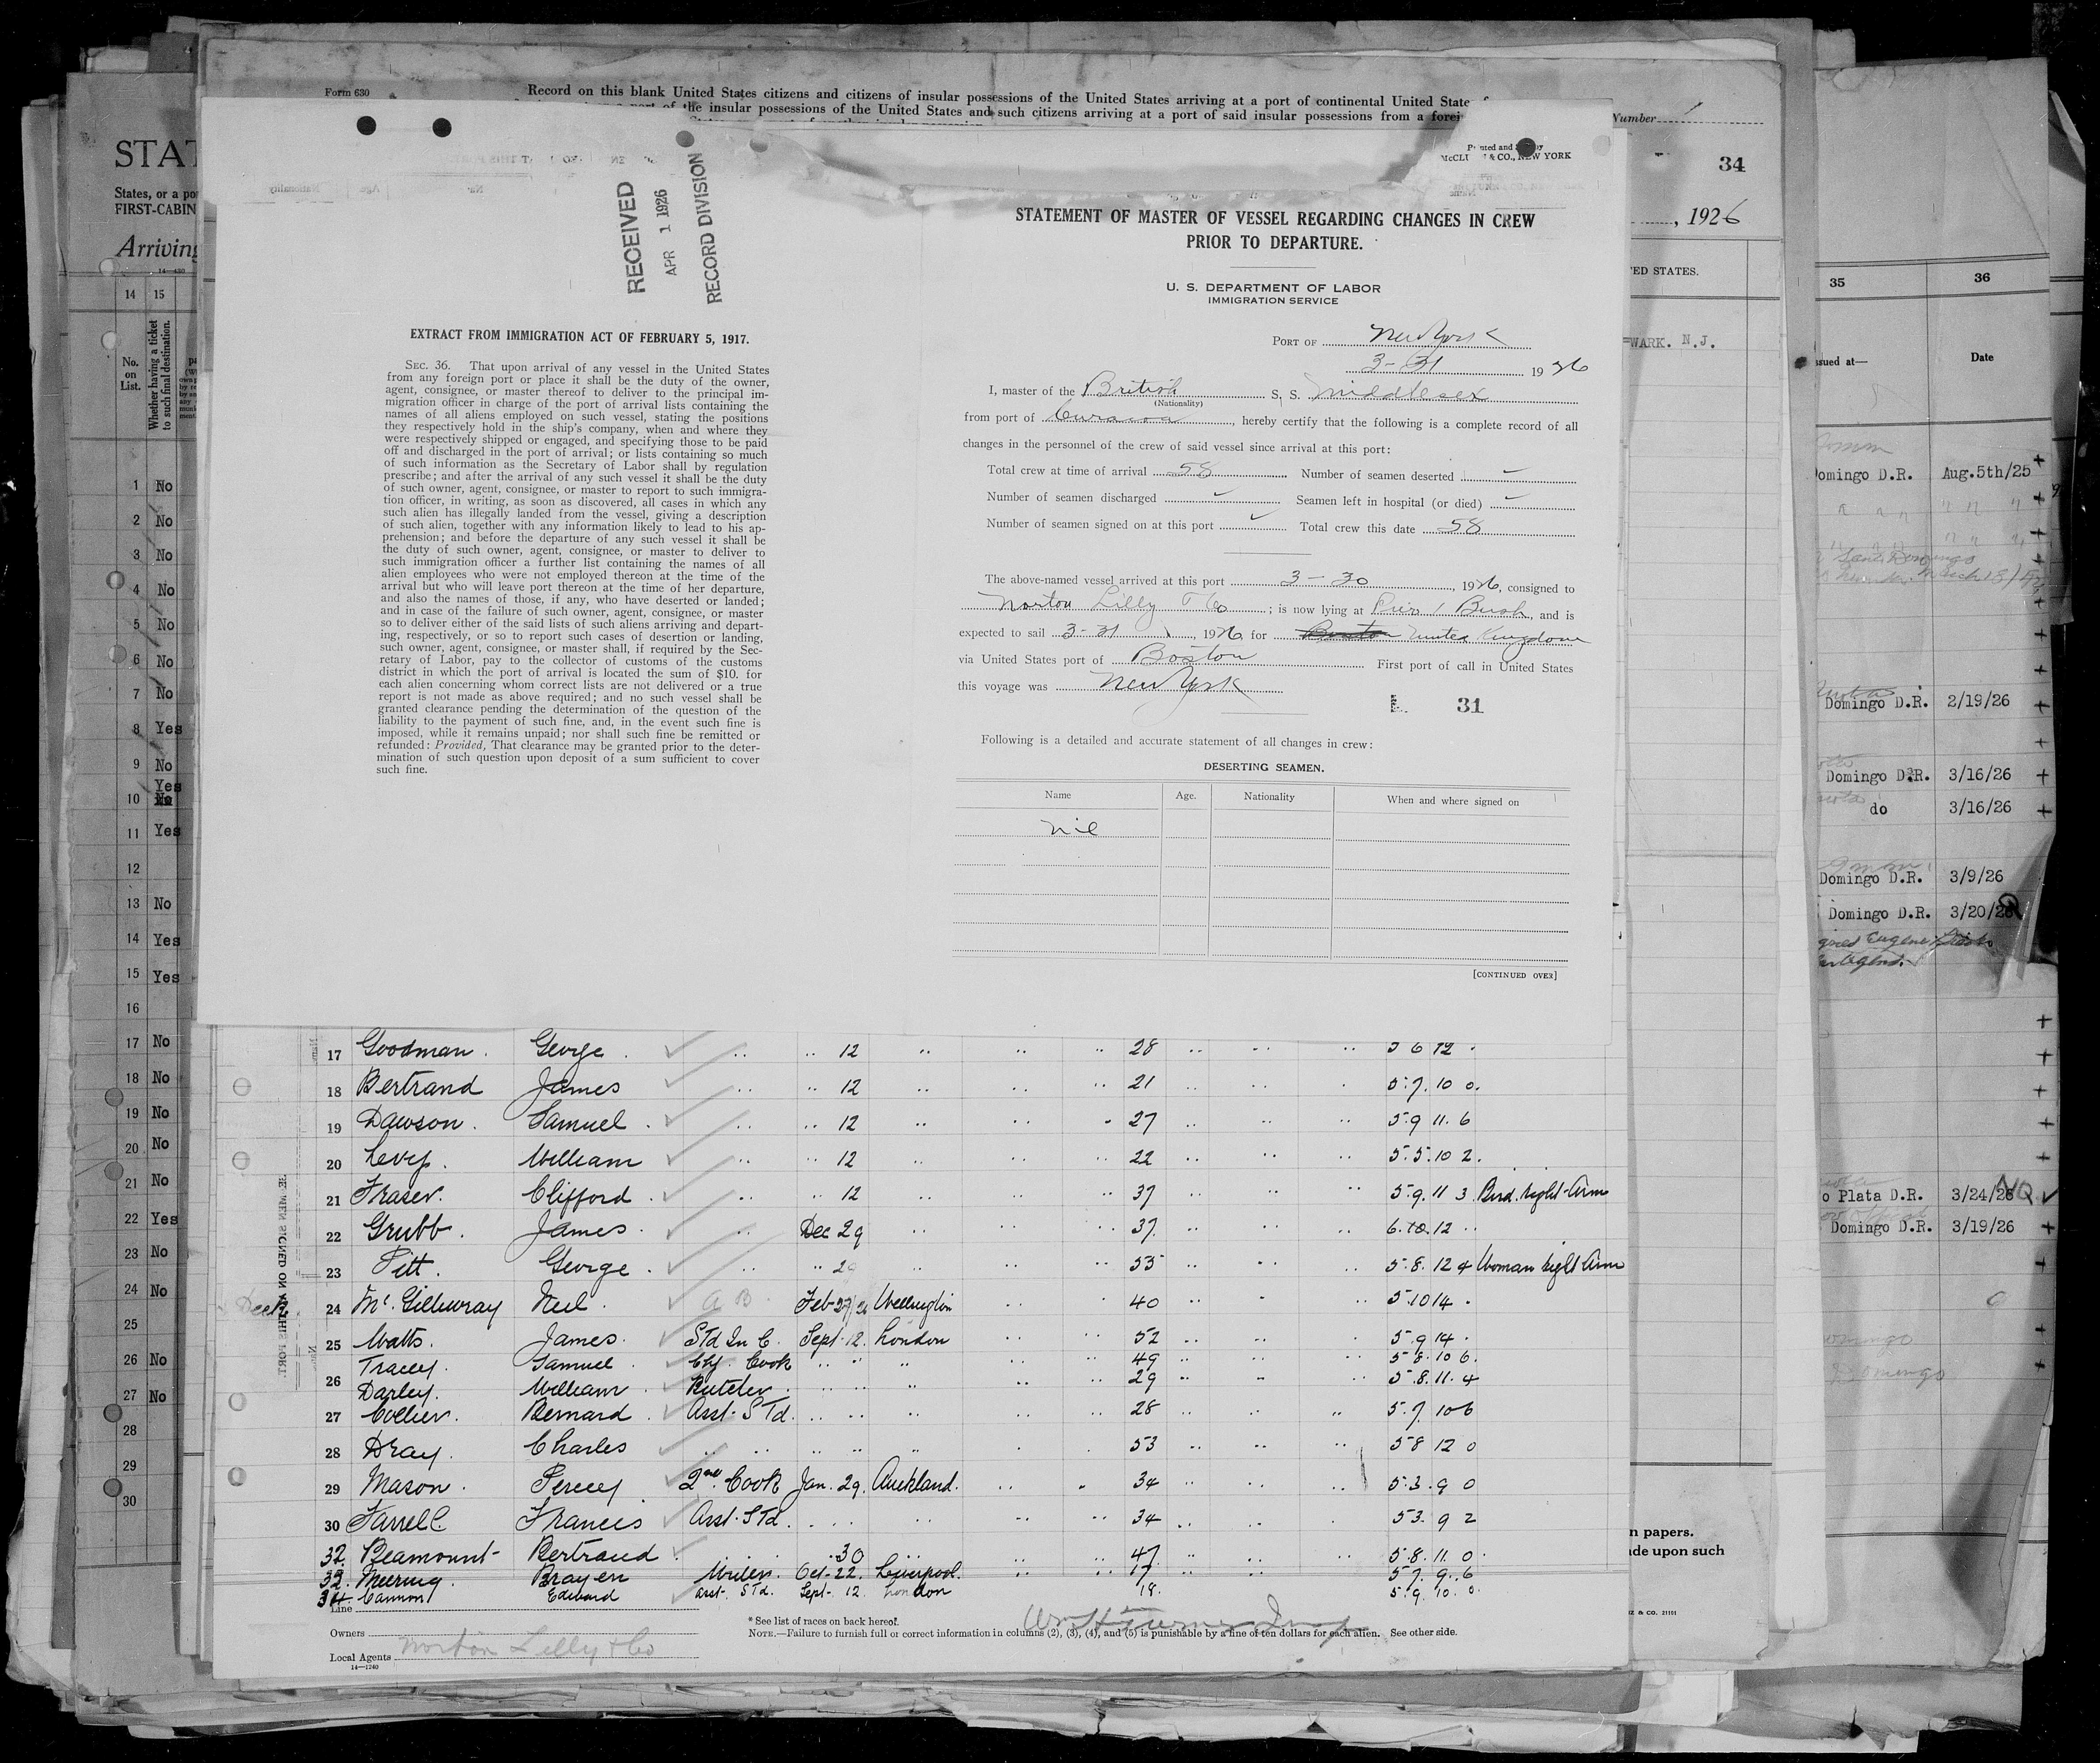 Form 630
Record on this blank United States citizens and citizens of insular possessions of the United States arriving at a port of continental United State
the insular possessions of the United States and such citizens arriving at a port of said insular possessions from a forei
Number 1
34
, 1926
ED STATES.
WARK. N.J.
n papers.
ide upon such
& CO. 21101
STAT
States, or a po
FIRST-CABIN
Arriving
14—430
14 15
No. on List.
Whether having a ticket to such final destination.
1 No
2 No
3 No
4 No
5 No
6 No
7 No
8 Yes
9 No
Yes
10 No
11 Yes
12
13 No
14 Yes
15 Yes
16
17 No
18 No
19 No
20 No
21 No
22 Yes
23 No
24 No
25
26 No
27 No
28
29
30
RECEIVED
APR 1 1926
RECORD DIVISION
EXTRACT FROM IMMIGRATION ACT OF FEBRUARY 5, 1917.
SEC. 36. That upon arrival of any vessel in the United States
from any foreign port or place it shall be the duty of the owner,
agent, consignee, or master thereof to deliver to the principal im-
migration officer in charge of the port of arrival lists containing the
names of all aliens employed on such vessel, stating the positions
they respectively hold in the ship's company, when and where they
were respectively shipped or engaged, and specifying those to be paid
off and discharged in the port of arrival; or lists containing so much
of such information as the Secretary of Labor shall by regulation
prescribe; and after the arrival of any such vessel it shall be the duty
of such owner, agent, consignee, or master to report to such immigra-
tion officer, in writing, as soon as discovered, all cases in which any
such alien has illegally landed from the vessel, giving a description
of such alien, together with any information likely to lead to his ap-
prehension; and before the departure of any such vessel it shall be
the duty of such owner, agent, consignee, or master to deliver to
such immigration officer a further list containing the names of all
alien employees who were not employed thereon at the time of the
arrival but who will leave port thereon at the time of her departure,
and also the names of those, if any, who have deserted or landed;
and in case of the failure of such owner, agent, consignee, or master
so to deliver either of the said lists of such aliens arriving and depart-
ing, respectively, or so to report such cases of desertion or landing,
such owner, agent, consignee, or master shall, if required by the Sec-
retary of Labor, pay to the collector of customs of the customs
district in which the port of arrival is located the sum of $10. for
each alien concerning whom correct lists are not delivered or a true
report is not made as above required; and no such vessel shall be
granted clearance pending the determination of the question of the
liability to the payment of such fine, and, in the event such fine is
imposed, while it remains unpaid; nor shall such fine be remitted or
refunded: Provided, That clearance may be granted prior to the deter-
mination of such question upon deposit of a sum sufficient to cover
such fine.
McCL & CO., NEW YORK
STATEMENT OF MASTER OF VESSEL REGARDING CHANGES IN CREW
PRIOR TO DEPARTURE.
U. S. DEPARTMENT OF LABOR
IMMIGRATION SERVICE
PORT OF New York
3-31 1926
I, master of the British S. S. Middlesex
(Nationality)
from port of Curacoa, hereby certify that the following is a complete record of all
changes in the personnel of the crew of said vessel since arrival at this port:
Total crew at time of arrival 58 Number of seamen deserted
Number of seamen discharged Seamen left in hospital (or died)
Number of seamen signed on at this port Total crew this date 58
The above-named vessel arrived at this port 3-30, 1926, consigned to
Norton Lilly & Co; is now lying at Pier 1 Bush, and is
expected to sail 3-31, 1926 for Boston United Kingdom
via United States port of Boston First port of call in United States
this voyage was New York
31
Following is a detailed and accurate statement of all changes in crew:
DESERTING SEAMEN.
Name Age. Nationality When and where signed on
Nil
[CONTINUED OVER]
17 Goodman. George. .. .. 12 .. .. .. 28 .. .. .. 5 6 12
18 Bertrand James .. .. 12 .. .. .. 21 .. .. . 5.7.10 0.
19 Dawson. Samuel. .. .. 12 .. .. . 27 .. .. .. 5.9 11.6
20 Levy. William .. .. 12 .. .. .. 22 .. .. .. 5.5.10 2.
21 Fraser. Clifford. .. .. 12 .. .. .. 37 .. .. .. 5.9.11 3 Bird. right-Arm
22 Grubb. James. .. Dec 29 .. .. .. 37. .. .. .. 6.10.12 ..
23 Pitt. George. .. .. 29 .. .. .. 55 .. .. .. 5.8.12 4 Woman right Arm
24 Mc. Gillivray Neil. A B. Feb 27/26 Wellington .. .. 40 .. .. .. 5.10 14.
25 Watts. James. Std In C. Sept. 12. London .. .. 52 .. .. . 5.9 14.
Tracey. Samuel. Chf. Cook .. .. .. .. .. 49 .. .. .. 5 8.10 6.
26 Darley. William. Butcher. .. .. .. .. .. 29 .. .. .. 5.8.11.4
27 Collier. Bernard. Asst. STd. .. .. .. .. .. 28 .. .. .. 5.7.10 6
28 Dray. Charles .. .. .. .. .. . . 53 .. .. .. 5 8 12 0
29 Mason. Percy 2nd Cook Jan. 29. Auckland. .. . 34 .. .. .. 5.3.9 0
30 Farrell. Francis Asst. STd. .. .. .. .. .. 34 .. .. . 5 3. 9 2
32. Beamount Bertrand. .. 30 .. .. .. 47. .. .. .. 5.8.11.0.
Oct-22. Liverpool. .. .. 17 .. .. .. 5 7. 9.6
34 Cannon Edward Asst. STd. Sept. 12 London 18. 5.9.10.0.
Line
Owners
Norton Lilly & Co
Local Agents
14—1240
* See list of races on back hereof.
NOTE.—Failure to furnish full or correct information in columns (2), (3), (4), and (5) is punishable by a fine of ten dollars for each alien. See other side.
35 36
sued at— Date
Domingo D.R. Aug.5th/25
Domingo D.R. 2/19/26
Domingo D.R. 3/16/26
do 3/16/26
Domingo D.R. 3/9/26
Domingo D.R. 3/20/26
o Plata D.R. 3/24/26 NQ
Domingo D.R. 3/19/26